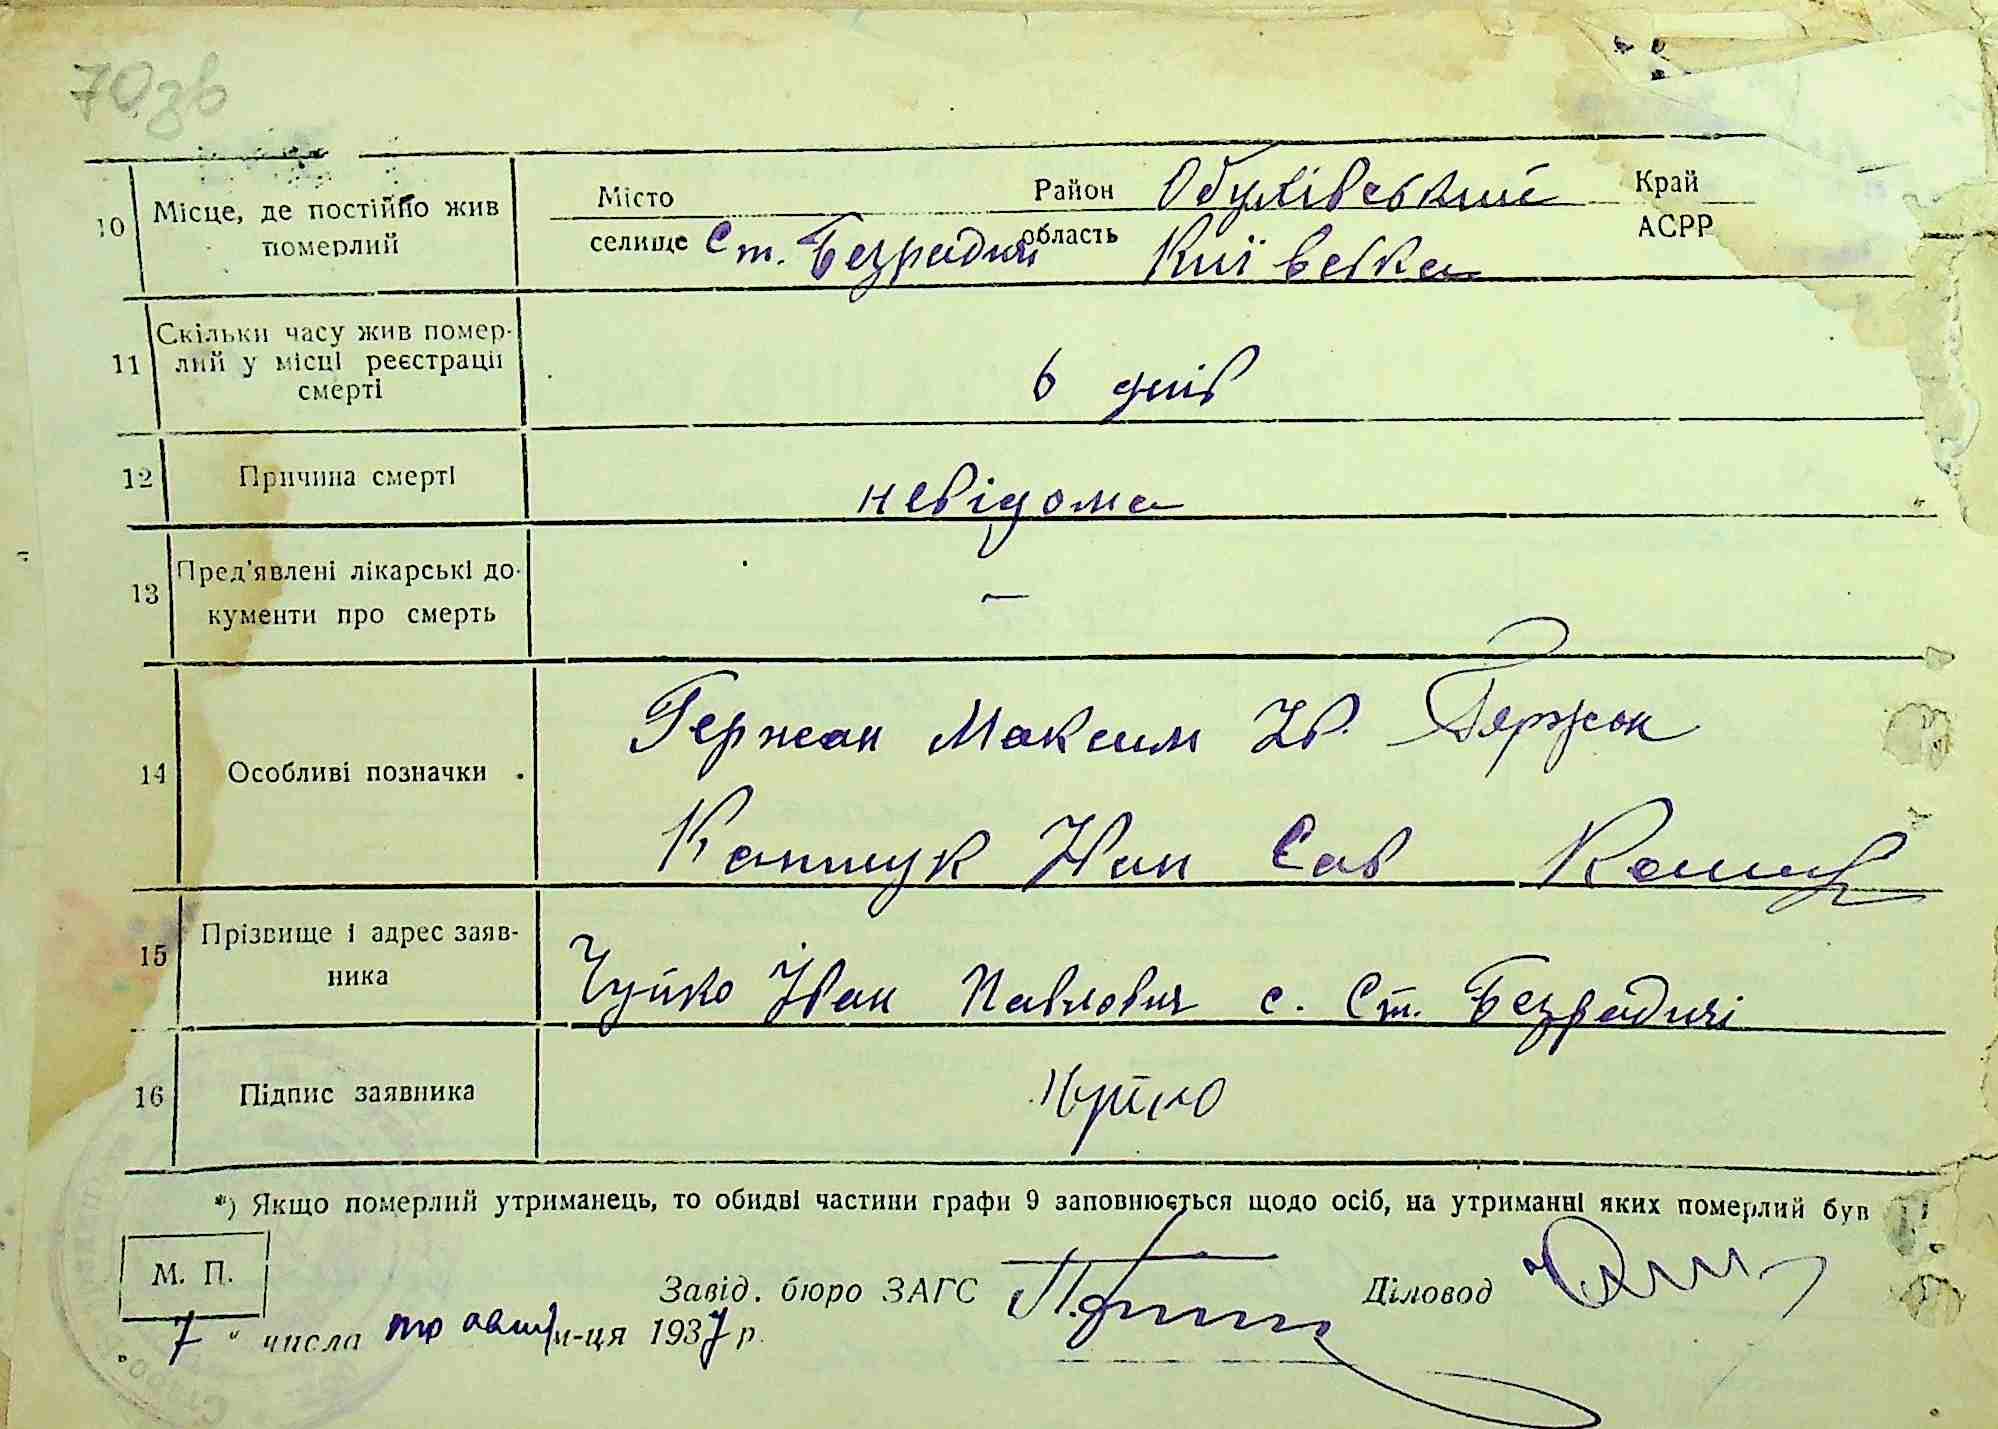 70зв
10 Місце, де постійно жив померлий Місто Район Обухівський Край
селище Ст. Безрадичі область Київська АСРР
11 Скільки часу жив помер-
лий у місці реєстрації
смерті
6 днів
12 Причина смерті невідома
13 Пред'явлені лікарські до-
кументи про смерть
–
14 Особливі позначки
Гержан Максим Ів. Гержан
Каптук Іван Сав
15 Прізвище і адрес заяв-
ника
Чуйко Іван Павлович с. Ст. Безрадичі
16 Підпис заявника Чуйко
*) Якщо померлий утриманець, то обидві частини графи 9 заповнюється щодо осіб, на утриманні яких померлий був
М. П.
Завід. бюро ЗАГС Діловод
7 " числа травня м-ця 1937 р.